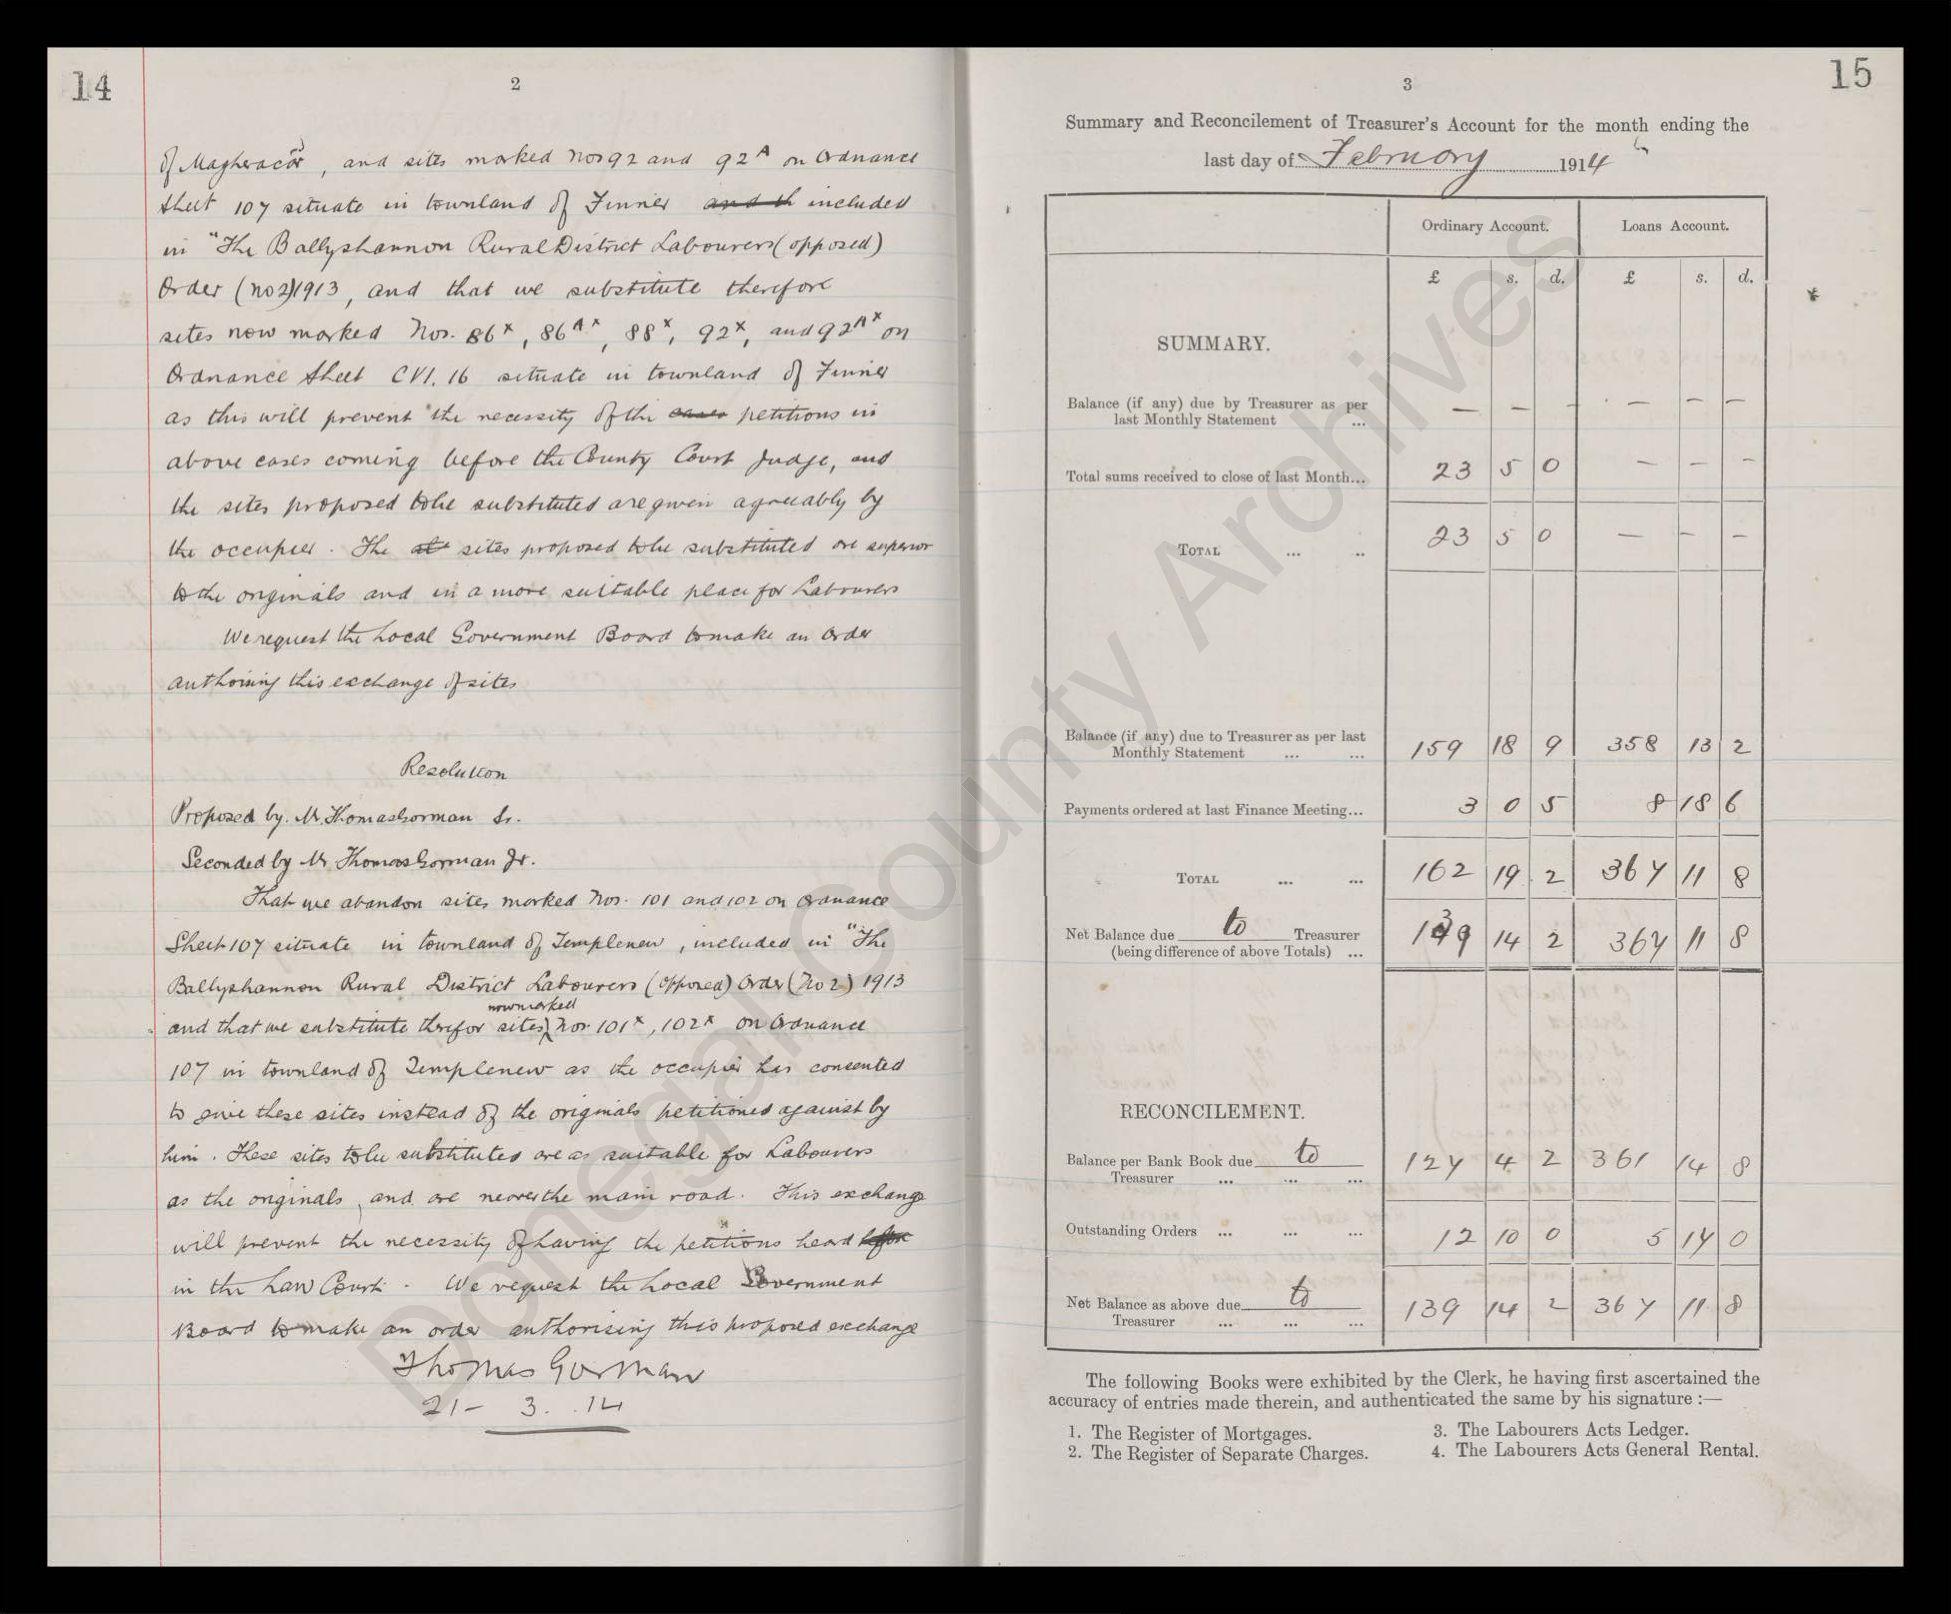 14
2
of Magheracar, and sites marked Nos 92 and 92A on Ordnance
Sheet 107 situate in townland of Finner and th included
in "The Ballyshannon Rural District Labourers (opposed)
Order (No 2) 1913, and that we substitute therefore
sites now marked Nos. 86x, 86Ax, 88x, 92x, and 92Ax on
Ordnance Sheet CVI. 16 situate in townland of Finner
as this will prevent the necessity of the cases petitions in
above cases coming before the County Court Judge, and
the sites proposed to be substituted are given agreeably by
the occupier. The sites proposed to be substituted are superior
to the originals and in a more suitable place for Labourers
We request the Local Government Board to make an Order
authorising this exchange of sites
Resolution
Proposed by. Mr Thomas Gorman Sr.
Seconded by Mr Thomas Gorman Jr.
That we abandon sites marked Nos. 101 and 102 on Ordnance
Sheet 107 situate in townland of Templenew, included in "The
Ballyshannon Rural District Labourers (opposed) Order (No 2) 1913
now marked
and that we substitute therefor sites Nos 101x, 102x on Ordnance
107 in townland of Templenew as the occupier has consented
to give these sites instead of the originals petitioned against by
him. These sites to be substituted are as suitable for Labourers
as the originals, and are nearer the main road. This exchange
will prevent the necessity of having the petitions heard before
in the Law Courts. We request the Local Government
Board to make an order authorising this proposed exchange
Thomas Gorman
21- 3. .14
15
3
Summary and Reconcilement of Treasurer's Account for the month ending the
last day of February 1914
Ordinary Account. Loans Account.
£ s. d. £ s. d.
SUMMARY.
Balance (if any) due by Treasurer as per
last Monthly Statement ... — — — — — —
Total sums received to close of last Month... 23 5 0 — — —
TOTAL ... .. 23 5 0 — — —
Balance (if any) due to Treasurer as per last
Monthly Statement ... ... 159 18 9 358 13 2
Payments ordered at last Finance Meeting... 3 0 5 8 18 6
TOTAL ... ... 162 19 2 367 11 8
Net Balance due to Treasurer 139 14 2 367 11 8
(being difference of above Totals) ...
RECONCILEMENT.
Balance per Bank Book due to 127 4 2 361 14 8
Treasurer ... ... ...
Outstanding Orders ... ... ... 12 10 0 5 17 0
Net Balance as above due to 139 14 2 367 11 8
Treasurer ... ... ...
The following Books were exhibited by the Clerk, he having first ascertained the
accuracy of entries made therein, and authenticated the same by his signature :—
1. The Register of Mortgages. 3. The Labourers Acts Ledger.
2. The Register of Separate Charges. 4. The Labourers Acts General Rental.
Donegal County Archives